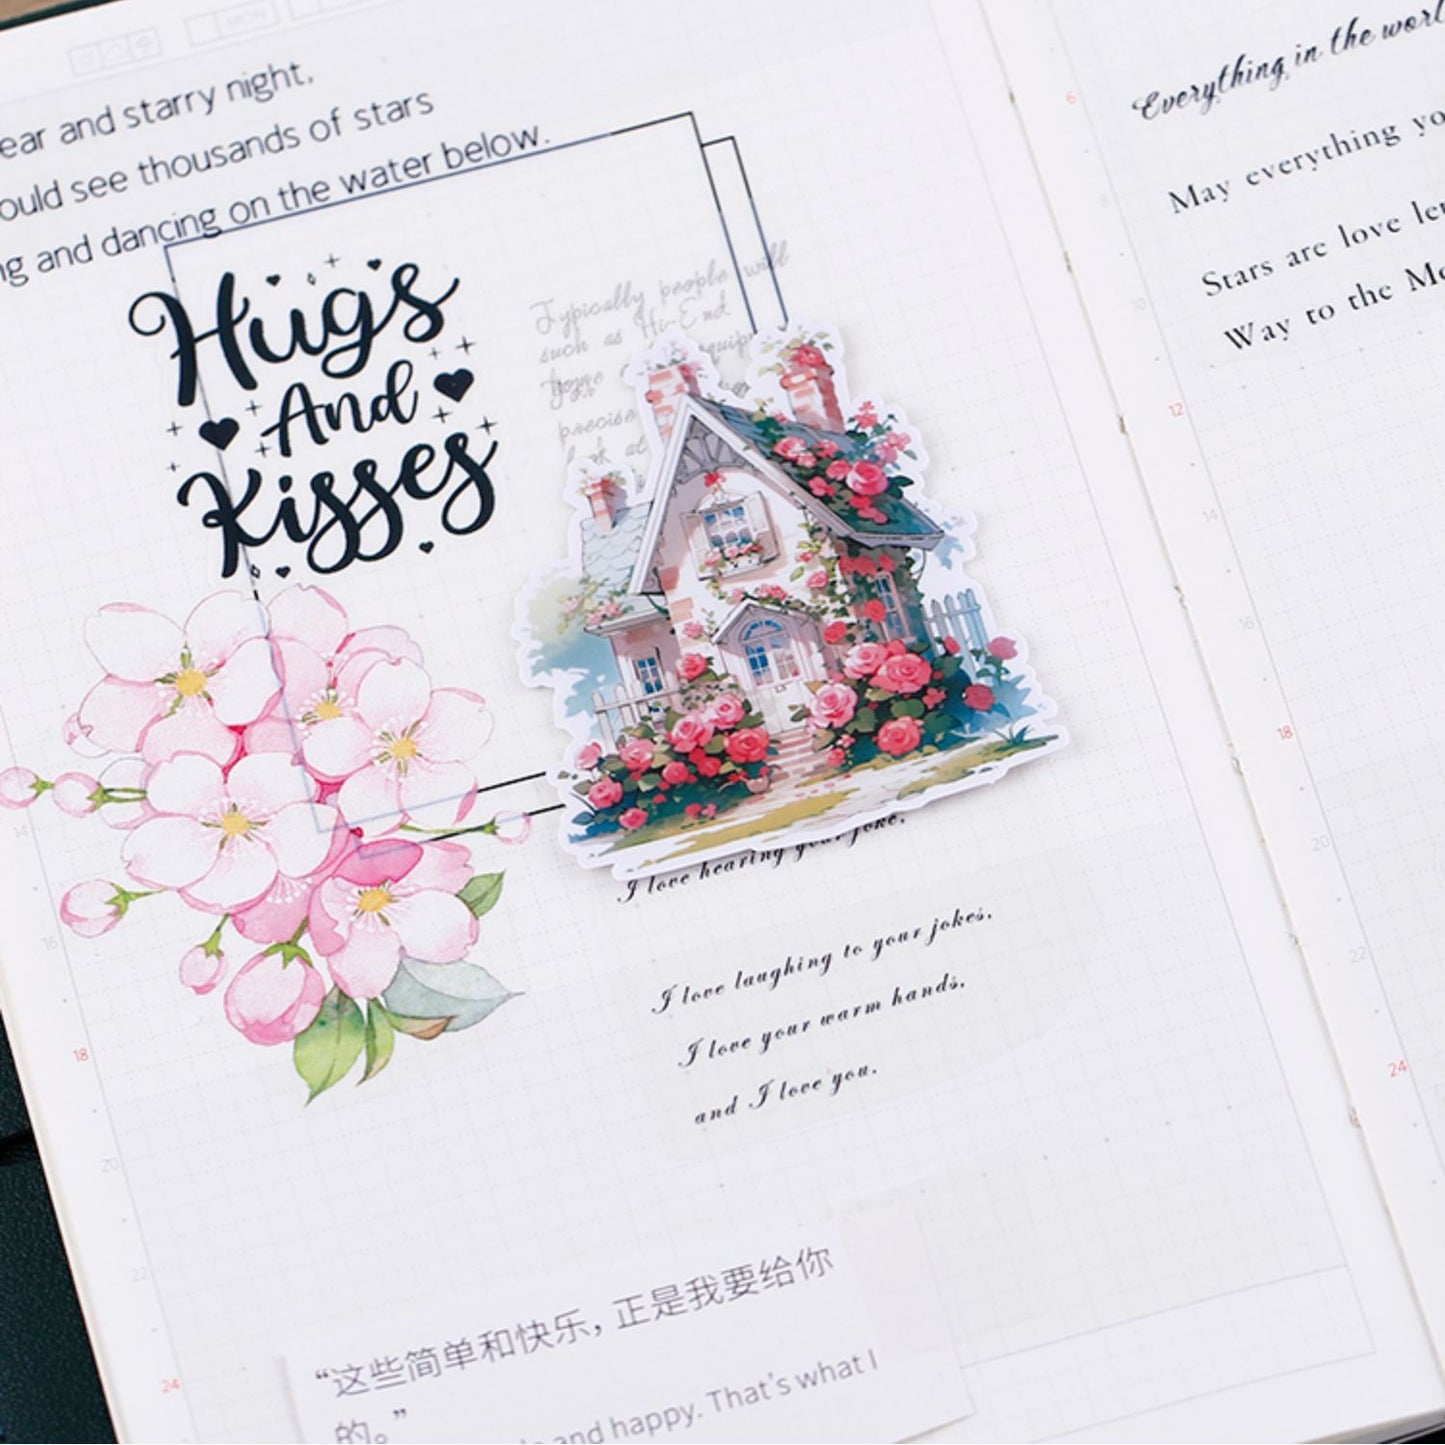 MON
ear and starry night,
ould see thousands of stars
ng and dancing on the water below.
Hugs
And
Kisses
Typically people will
such as Hi-End
equip
precise
look at
I love hearing your joke.
I love laughing to your jokes,
I love your warm hands,
and I love you.
“这些简单和快乐，正是我要给你
的。”
and happy. That's what I
14
16
18
20
22
24
Everything in the worl
May everything yo
Stars are love le
Way to the Mo
6
8
10
12
14
16
18
20
22
24